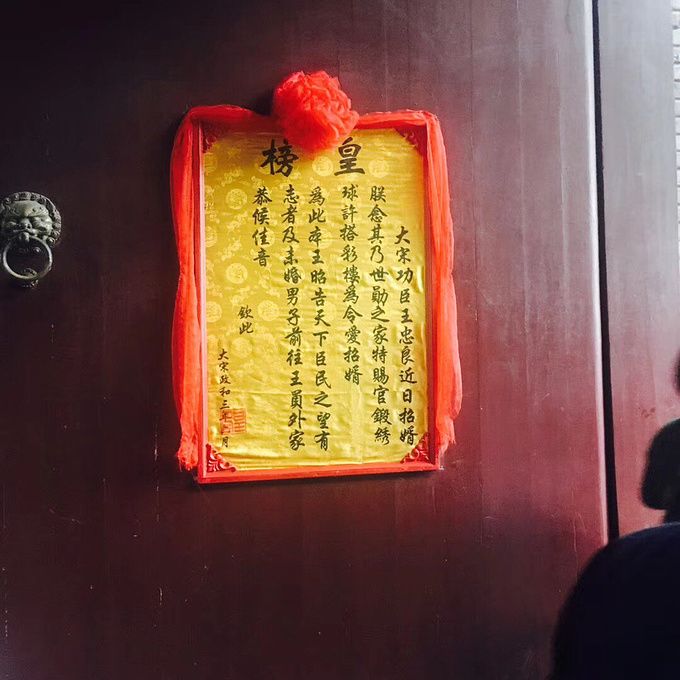 皇榜
大宋功臣王忠良近日招婿
朕念其乃世勛之家特賜官鍛綉
球許搭彩樓為令愛招婿
為此本王昭告天下臣民之望有
志者及未婚男子前往王員外家
恭候佳音
欽此
大宋政和三年月